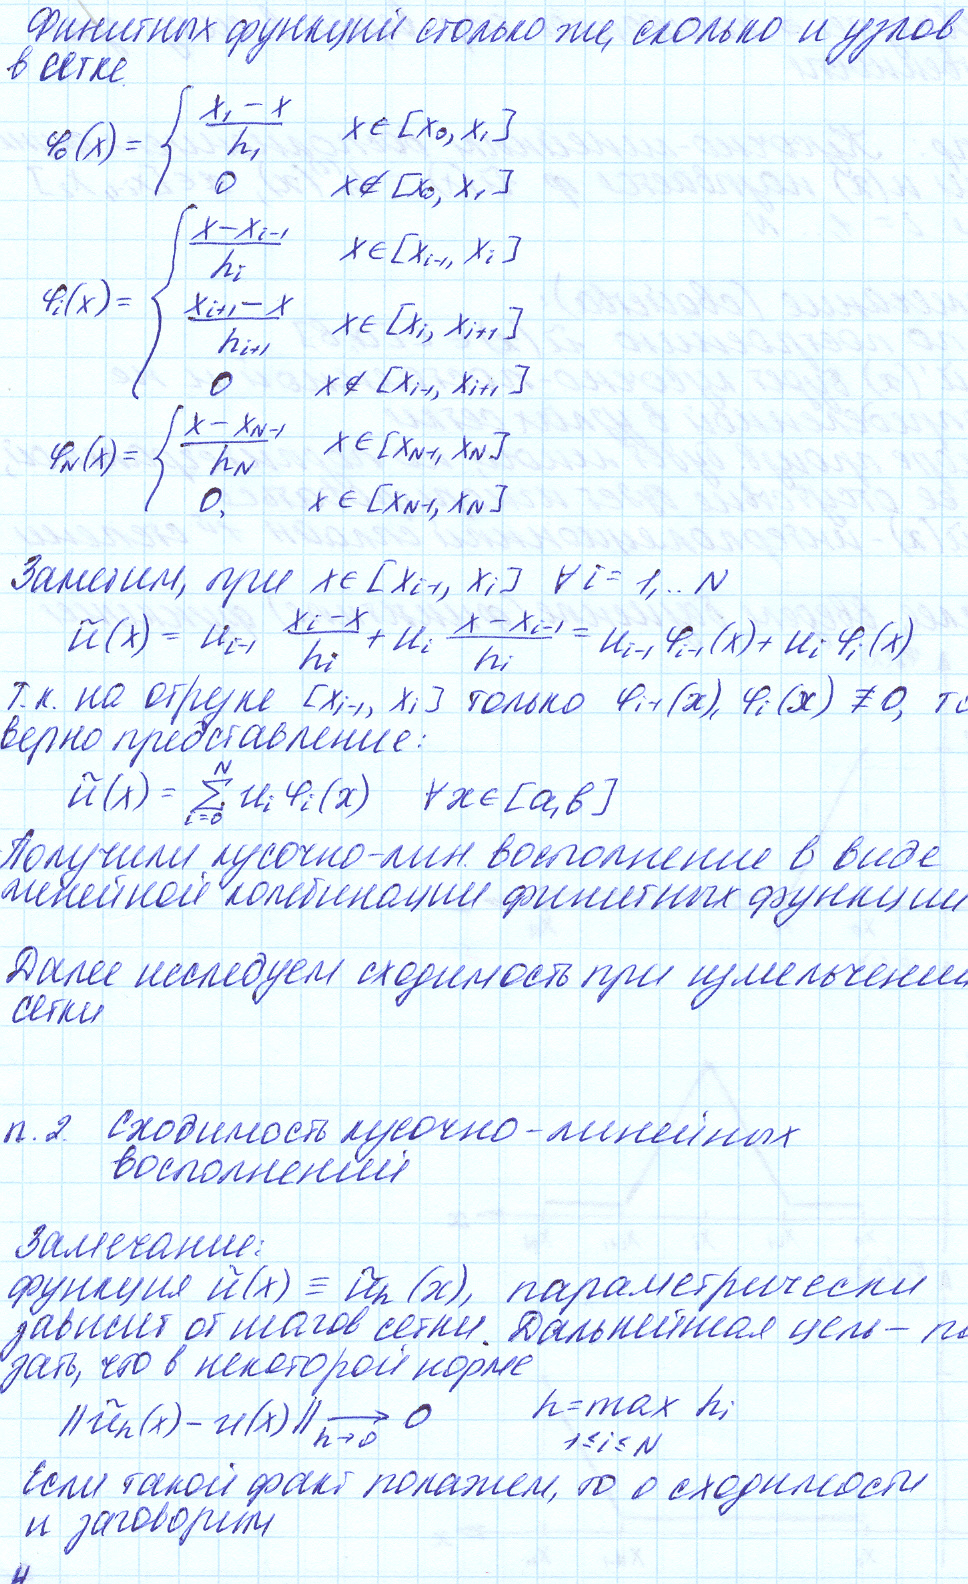 Финитных функций столько же, сколько и узлов
в сетке
φ₀(x) = { (x₁ − x)/h₁   x ∈ [x₀, x₁]
0   x ∉ [x₀, x₁]
φᵢ(x) = { (x − xᵢ₋₁)/hᵢ   x ∈ [xᵢ₋₁, xᵢ]
(xᵢ₊₁ − x)/hᵢ₊₁   x ∈ [xᵢ, xᵢ₊₁]
0   x ∉ [xᵢ₋₁, xᵢ₊₁]
φ_N(x) = { (x − x_{N-1})/h_N   x ∈ [x_{N-1}, x_N]
0,   x ∈ [x_{N-1}, x_N]
Заметим, при x ∈ [xᵢ₋₁, xᵢ] ∀ i = 1,.. N
ũ(x) = uᵢ₋₁ (xᵢ − x)/hᵢ + uᵢ (x − xᵢ₋₁)/hᵢ = uᵢ₋₁ φᵢ₋₁(x) + uᵢ φᵢ(x)
Т.к. на отрезке [xᵢ₋₁, xᵢ] только φᵢ₋₁(x), φᵢ(x) ≢ 0, то
верно представление:
ũ(x) = ∑_{i=0}^{N} uᵢ φᵢ(x)   ∀ x ∈ [a, b]
Получили кусочно-лин. восполнение в виде
линейной комбинации финитных функции
Далее исследуем сходимость при измельчении
сетки
п. 2. Сходимость кусочно-линейных
восполнений
Замечание:
функция ũ(x) ≡ ũₕ(x), параметрически
зависит от шагов сетки. Дальнейшая цель – по
зать, что в некоторой норме
‖ũₕ(x) − u(x)‖ ⟶_{h→0} 0   h = max_{1≤i≤N} hᵢ
Если такой факт покажем, то о сходимости
и заговорим